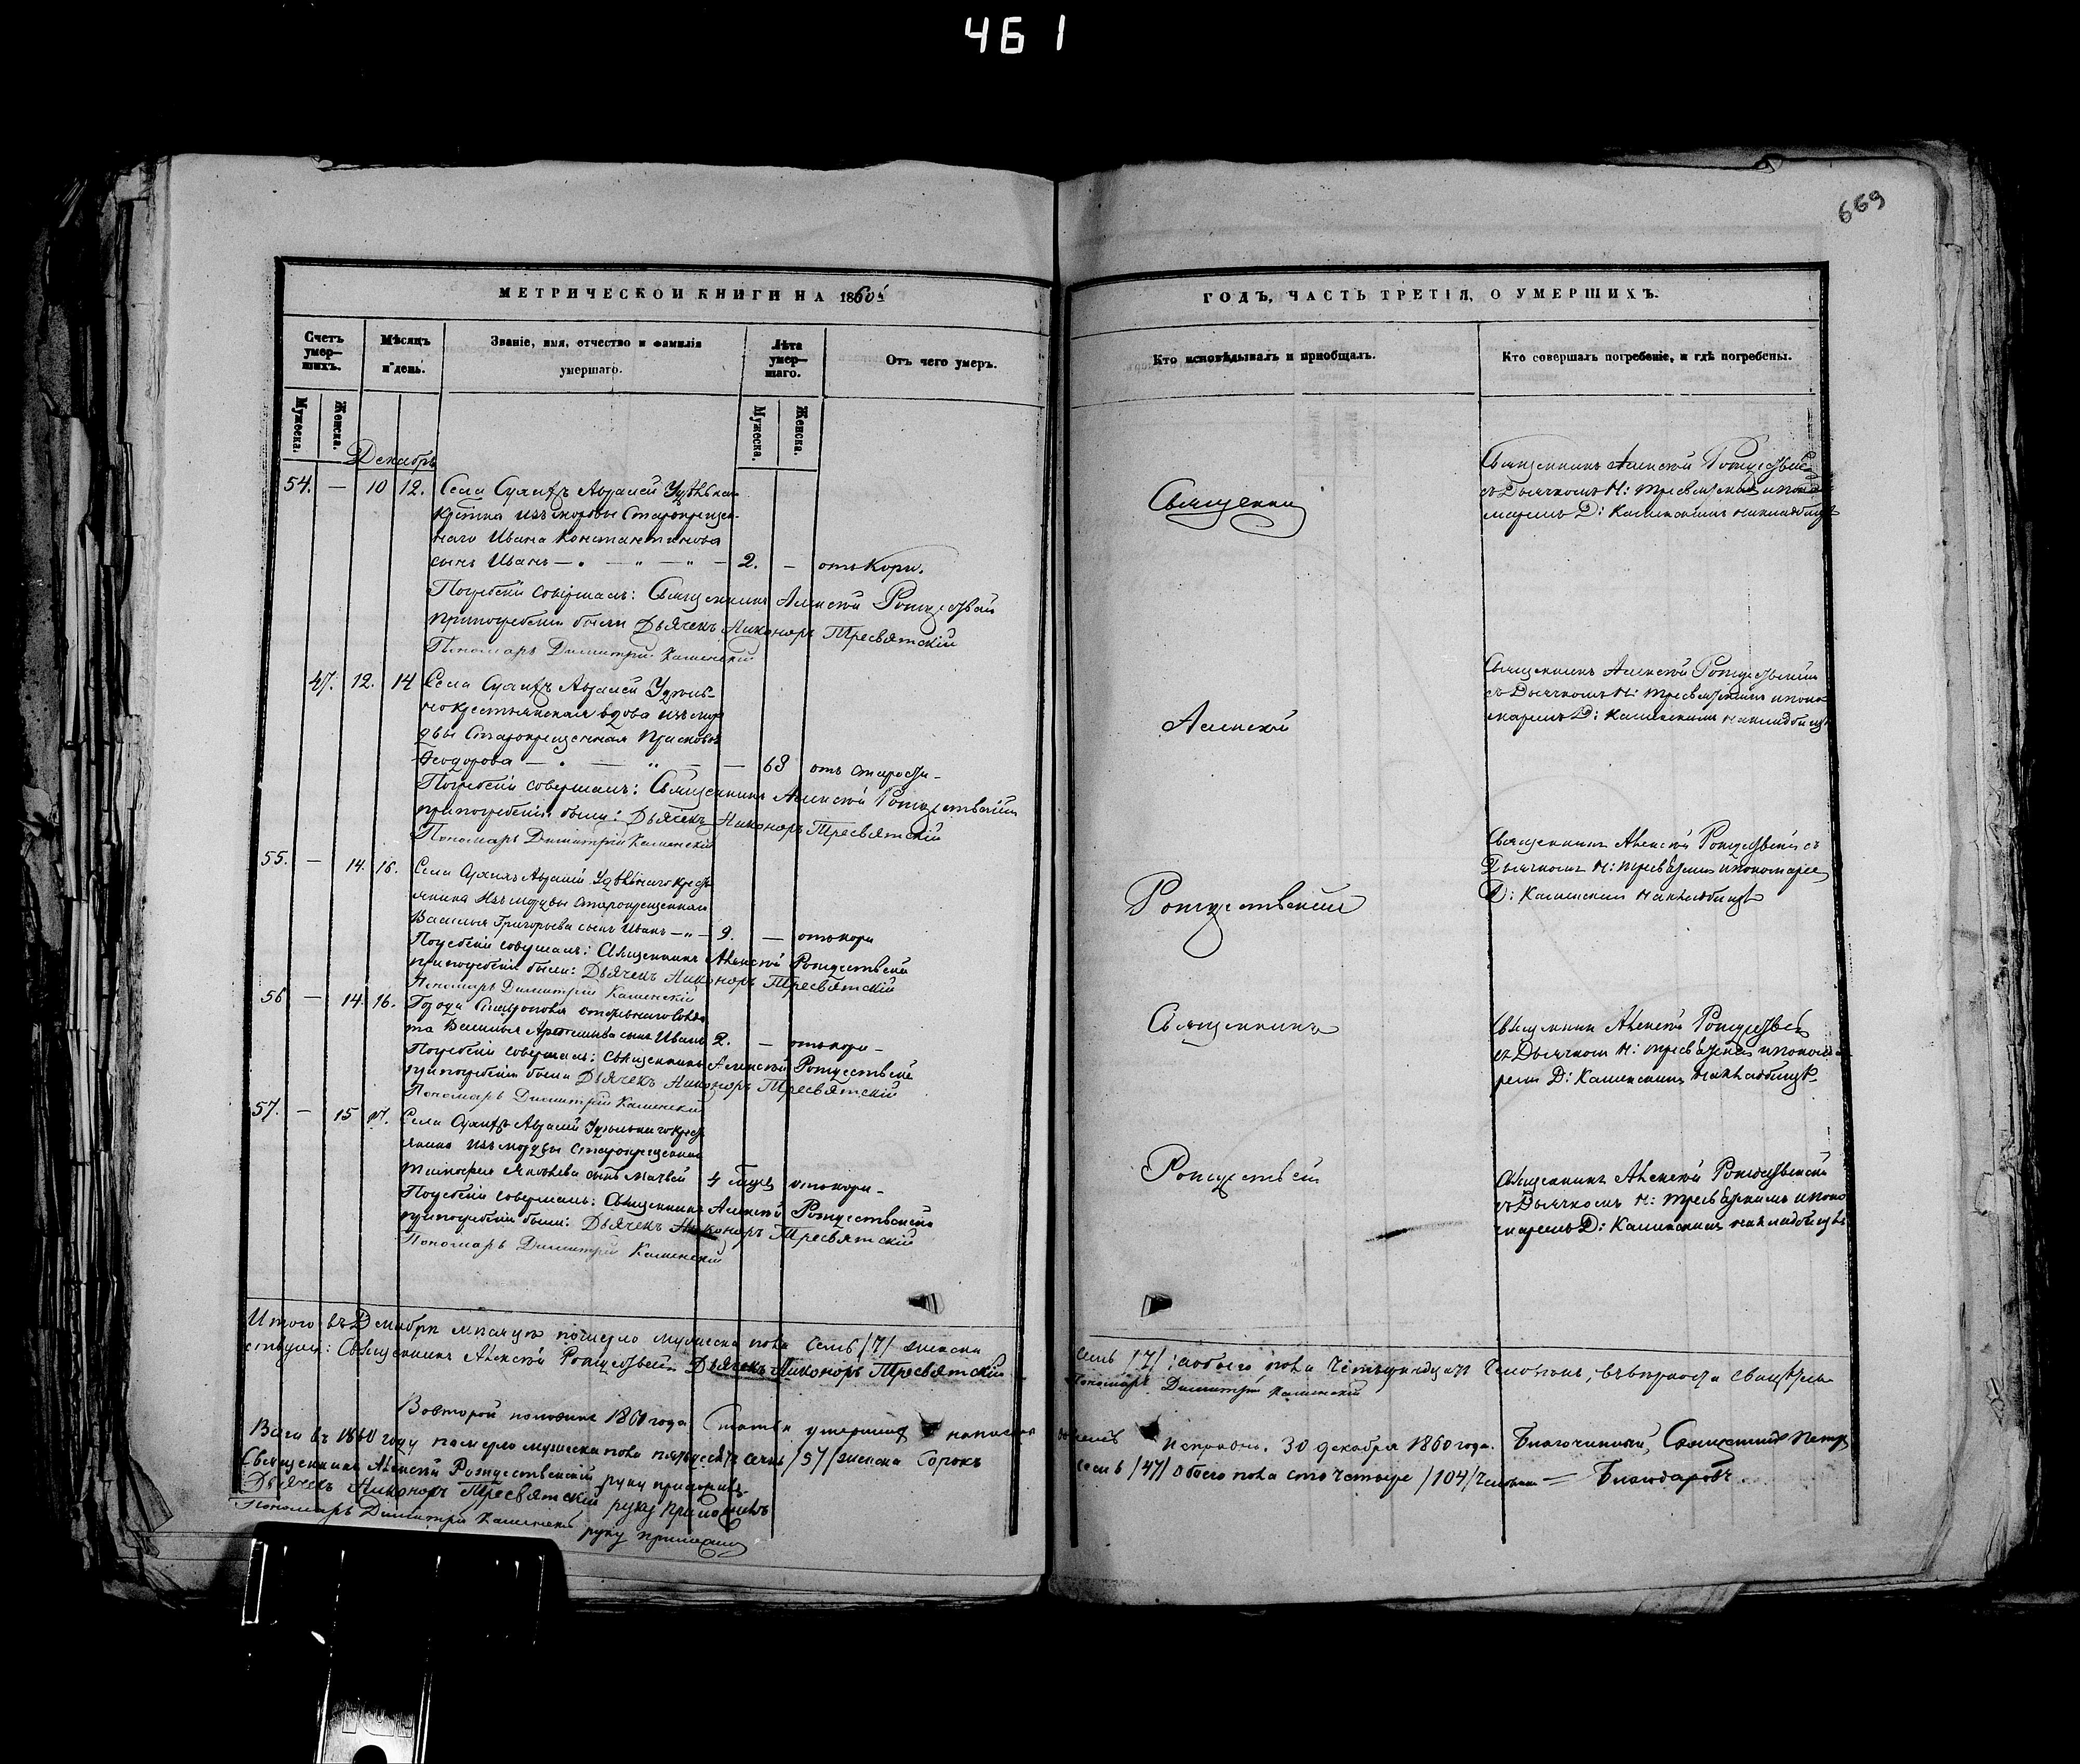 461
669
МЕТРИЧЕСКОЙ КНИГИ НА 1860й
Счетъ умер-
шихъ.
Мѣсяцъ
и день.
Званіе, имя, отчество и фамилія
умершаго.
Лѣта
умер-
шаго.
Отъ чего умеръ.
Мужеска.
Женска.
Мужеска.
Женска.
Декабрь
54. — 10 12. Села
крестьянина изъ мордвы Старокрещен-
наго Ивана Константинова
сынъ Иванъ — 2. — отъ кори.
Погребеніе совершалъ: Священникъ Алексѣй Рождественскій
при погребеніи были Дьячекъ Никоноръ Тресвятскій
Пономарь Димитрій Каменскій
47. 12. 14 Села
но крестьянская вдова изъ мор
двы Старокрещенная Прасковья
Феодорова — 63 отъ старости
Погребеніе совершалъ: Священникъ Алексѣй Рождественскій
при погребеніи были: Дьячекъ Никоноръ Тресвятскій
Пономарь Димитрій Каменскій
55. — 14. 16. Села Удѣльнаго кресть
янина Изъ мордвы старокрещеннаго
Василья Григорьева сынъ Иванъ — 9. — отъ кори
Погребеніе совершалъ: Священникъ Алексѣй Рождественскій
при погребеніи были: Дьячекъ Никоноръ Тресвятскій
Пономарь Димитрій Каменскій
56 — 14. 16. Города
та Василья сынъ Иванъ 2. — отъ кори
Погребеніе совершалъ: Священникъ Алексѣй Рождественскій
при погребеніи были Дьячекъ Никоноръ Тресвятскій
Пономарь Димитрій Каменскій
57. — 15 17. Села Удѣльнаго кресть
янина Изъ мордвы старокрещеннаго
Тимофея Яковлева сынъ Матвей 4 отъ кори
Погребеніе совершалъ: Священникъ Алексѣй Рождественскій
при погребеніи были: Дьячекъ Никоноръ Тресвятскій
Пономарь Димитрій Каменскій
Итого въ Декабрѣ мѣсяцѣ померло мужеска пола семь /7/ женска
Священникъ Алексѣй Рождественскій Дьячекъ Никоноръ Тресвятскій
Во второй половинѣ 1860 года Статьи умершихъ написаны
Всего въ 1860 году померло мужеска пола пятьдесятъ семь /57/ женска Сорокъ
Священникъ Алексѣй Рождественскій руку приложилъ
Дьячекъ Никоноръ Тресвятскій руку приложилъ
Пономарь Димитрій Каменскій руку приложилъ
ГОДЪ, ЧАСТЬ ТРЕТІЯ, О УМЕРШИХЪ.
Кто исповѣдывалъ и пріобщалъ.
Кто совершалъ погребеніе, и гдѣ погребены.
Священникъ
Священникъ Алексѣй Рождественскій
съ Дьячкомъ Н: Тресвятскимъ и поно
маремъ Д: Каменскимъ на кладбищѣ
Алексѣй
Священникъ Алексѣй Рождественскій
съ Дьячкомъ Н: Тресвятскимъ и поно
маремъ Д: Каменскимъ на кладбищѣ
Рождественскій
Священникъ Алексѣй Рождественскій съ
Дьячкомъ Н: Тресвятскимъ и пономаремъ
Д: Каменскимъ на кладбищѣ
Священникъ
Священникъ Алексѣй Рождественскій
съ Дьячкомъ Н: Тресвятскимъ и понома
ремъ Д: Каменскимъ на кладбищѣ
Рождественскій
Священникъ Алексѣй Рождественскій
съ Дьячкомъ Н: Тресвятскимъ и поно
маремъ Д: Каменскимъ на кладбищѣ
семь /7/ обоего пола четырнадцать человѣкъ,
Пономарь Димитрій Каменскій
исправно. 30 декабря 1860 года. Благочинный, Священникъ Петръ
семь /47/ обоего пола сто четыре /104/ человѣкъ — Благодаровъ.